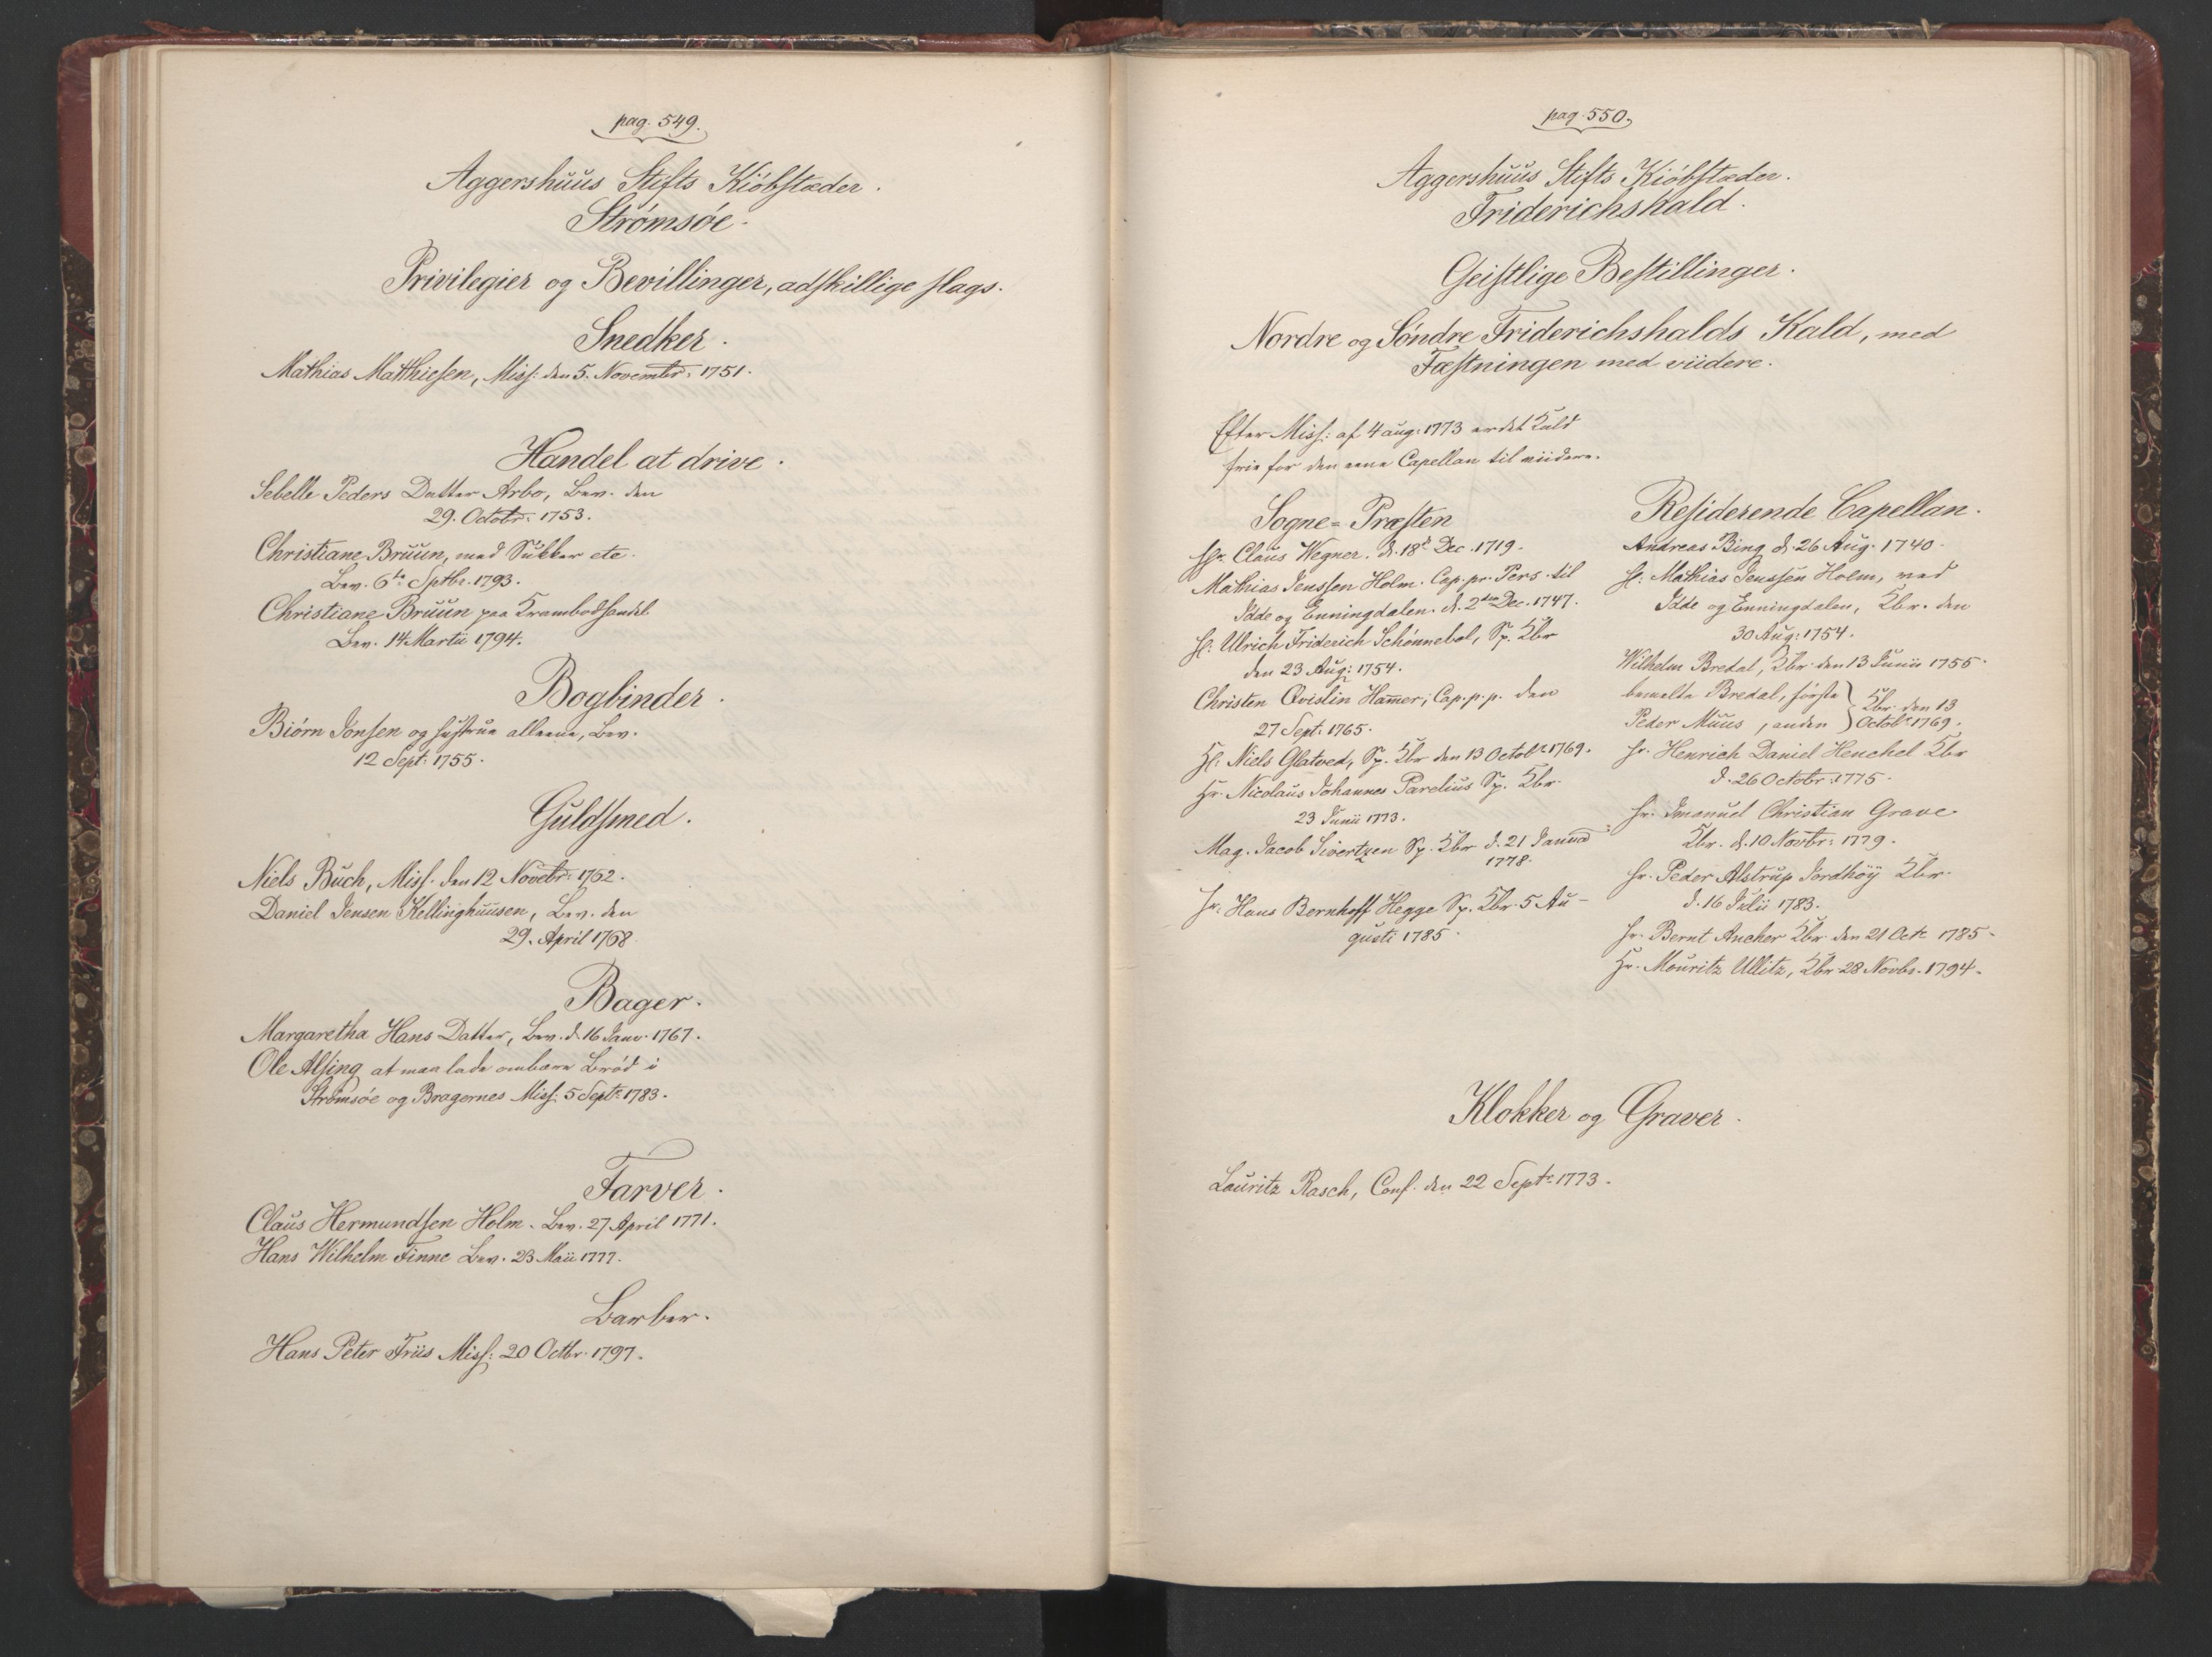 pag. 549.
Aggershuus Stifts Kiöbstæder.
Strömsöe.
Privilegier og Bevillinger, adskillige slags.
Snedker.
Mathias Matthiesen, Miss: den 5. Novembr: 1751.
Handel at drive.
Sebelle Peders Datter Arbo, Bev. den
29. Octobr: 1753.
Christiane Bruun, med Sukker etc.
Bev. 6te Septbr. 1793.
Christiane Bruun paa Krambodhandel
Bev. 14 Martii 1794.
Bogbinder.
Biörn Jonsen og hustrue alleene, Bev.
12 Sept: 1755.
Guldsmed.
Niels Buch, Miss. den 12 Novebr: 1762.
Daniel Jensen Kellinghuusen, Bev. den
29. April 1768.
Bager.
Margaretha Hans Datter, Bev. d. 16 Janr. 1767.
Ole Alsing at maa lade ombære Bröd i
Strömsöe og Bragernes Miss: 5 Septr 1783.
Farver.
Claus Hermundsen Holm. Bev. 27 April 1771.
Hans Wilhelm Finne Bev. 23 Maii 1777.
Barber.
Hans Peter Friis Miss: 20 Octbr. 1797.
pag. 550.
Aggershuus Stifts Kiöbstæder.
Friderichshald.
Geistlige Bestillinger.
Nordre og Söndre Friderichshalds Kald, med
Fæstningen med viidere.
Efter Miss: af 4 aug: 1773 er det Kald
frie for den eene Capellan til viidere.
Sogne-Præsten
Hr. Claus Wegner. d. 18de Dec. 1719.
Mathias Jenssen Holm. Cap. pr. Pers. til
Idde og Enningdalen. d. 2den Dec. 1747.
H: Ulrich Friderich Schönnebol, Sp. Kbr
den 23 Aug: 1754.
Christen Qvislin Ham̄er, Cap. p. p. den
27 Sept: 1765.
H: Niels Glatved, Sp. Kbr den 13 Octobr 1769.
Hr. Nicolaus Johannes Parelius Sp. Kbr.
23 Junii 1773.
Mag. Jacob Sivertzen Sp. Kbr d. 21 Januar
1778.
Hr. Hans Bernhoff Hegge Sp. Kbr. 5 Au-
gusti 1785.
Residerende Capellan.
Andreas Bing d. 26 Aug. 1740.
H: Mathias Jenssen Holm, med
Idde og Enningdalen, Kbr. den
30 Aug: 1754.
Wilhelm Bredal, Kbr. den 13 Junii 1755.
bemelte Bredal, förste } Kbr. den 13
Peder Muus, anden } Octobr 1769.
Hr. Henrich Daniel Henchel Kbr
d. 26 Octobr. 1775.
Hr. Imanuel Christian Grave
Kbr. d. 10 Novbr: 1779.
Hr. Peder Alstrup Jordhöy Kbr.
d. 16 Julii 1783.
Hr. Bernt Ancher Kbr. den 21 Oct: 1785.
Hr. Mouritz Ullitz, Kbr 28 Novbr. 1794.
Klokker og Graver.
Lauritz Rasch, Conf. den 22 Septr 1773.